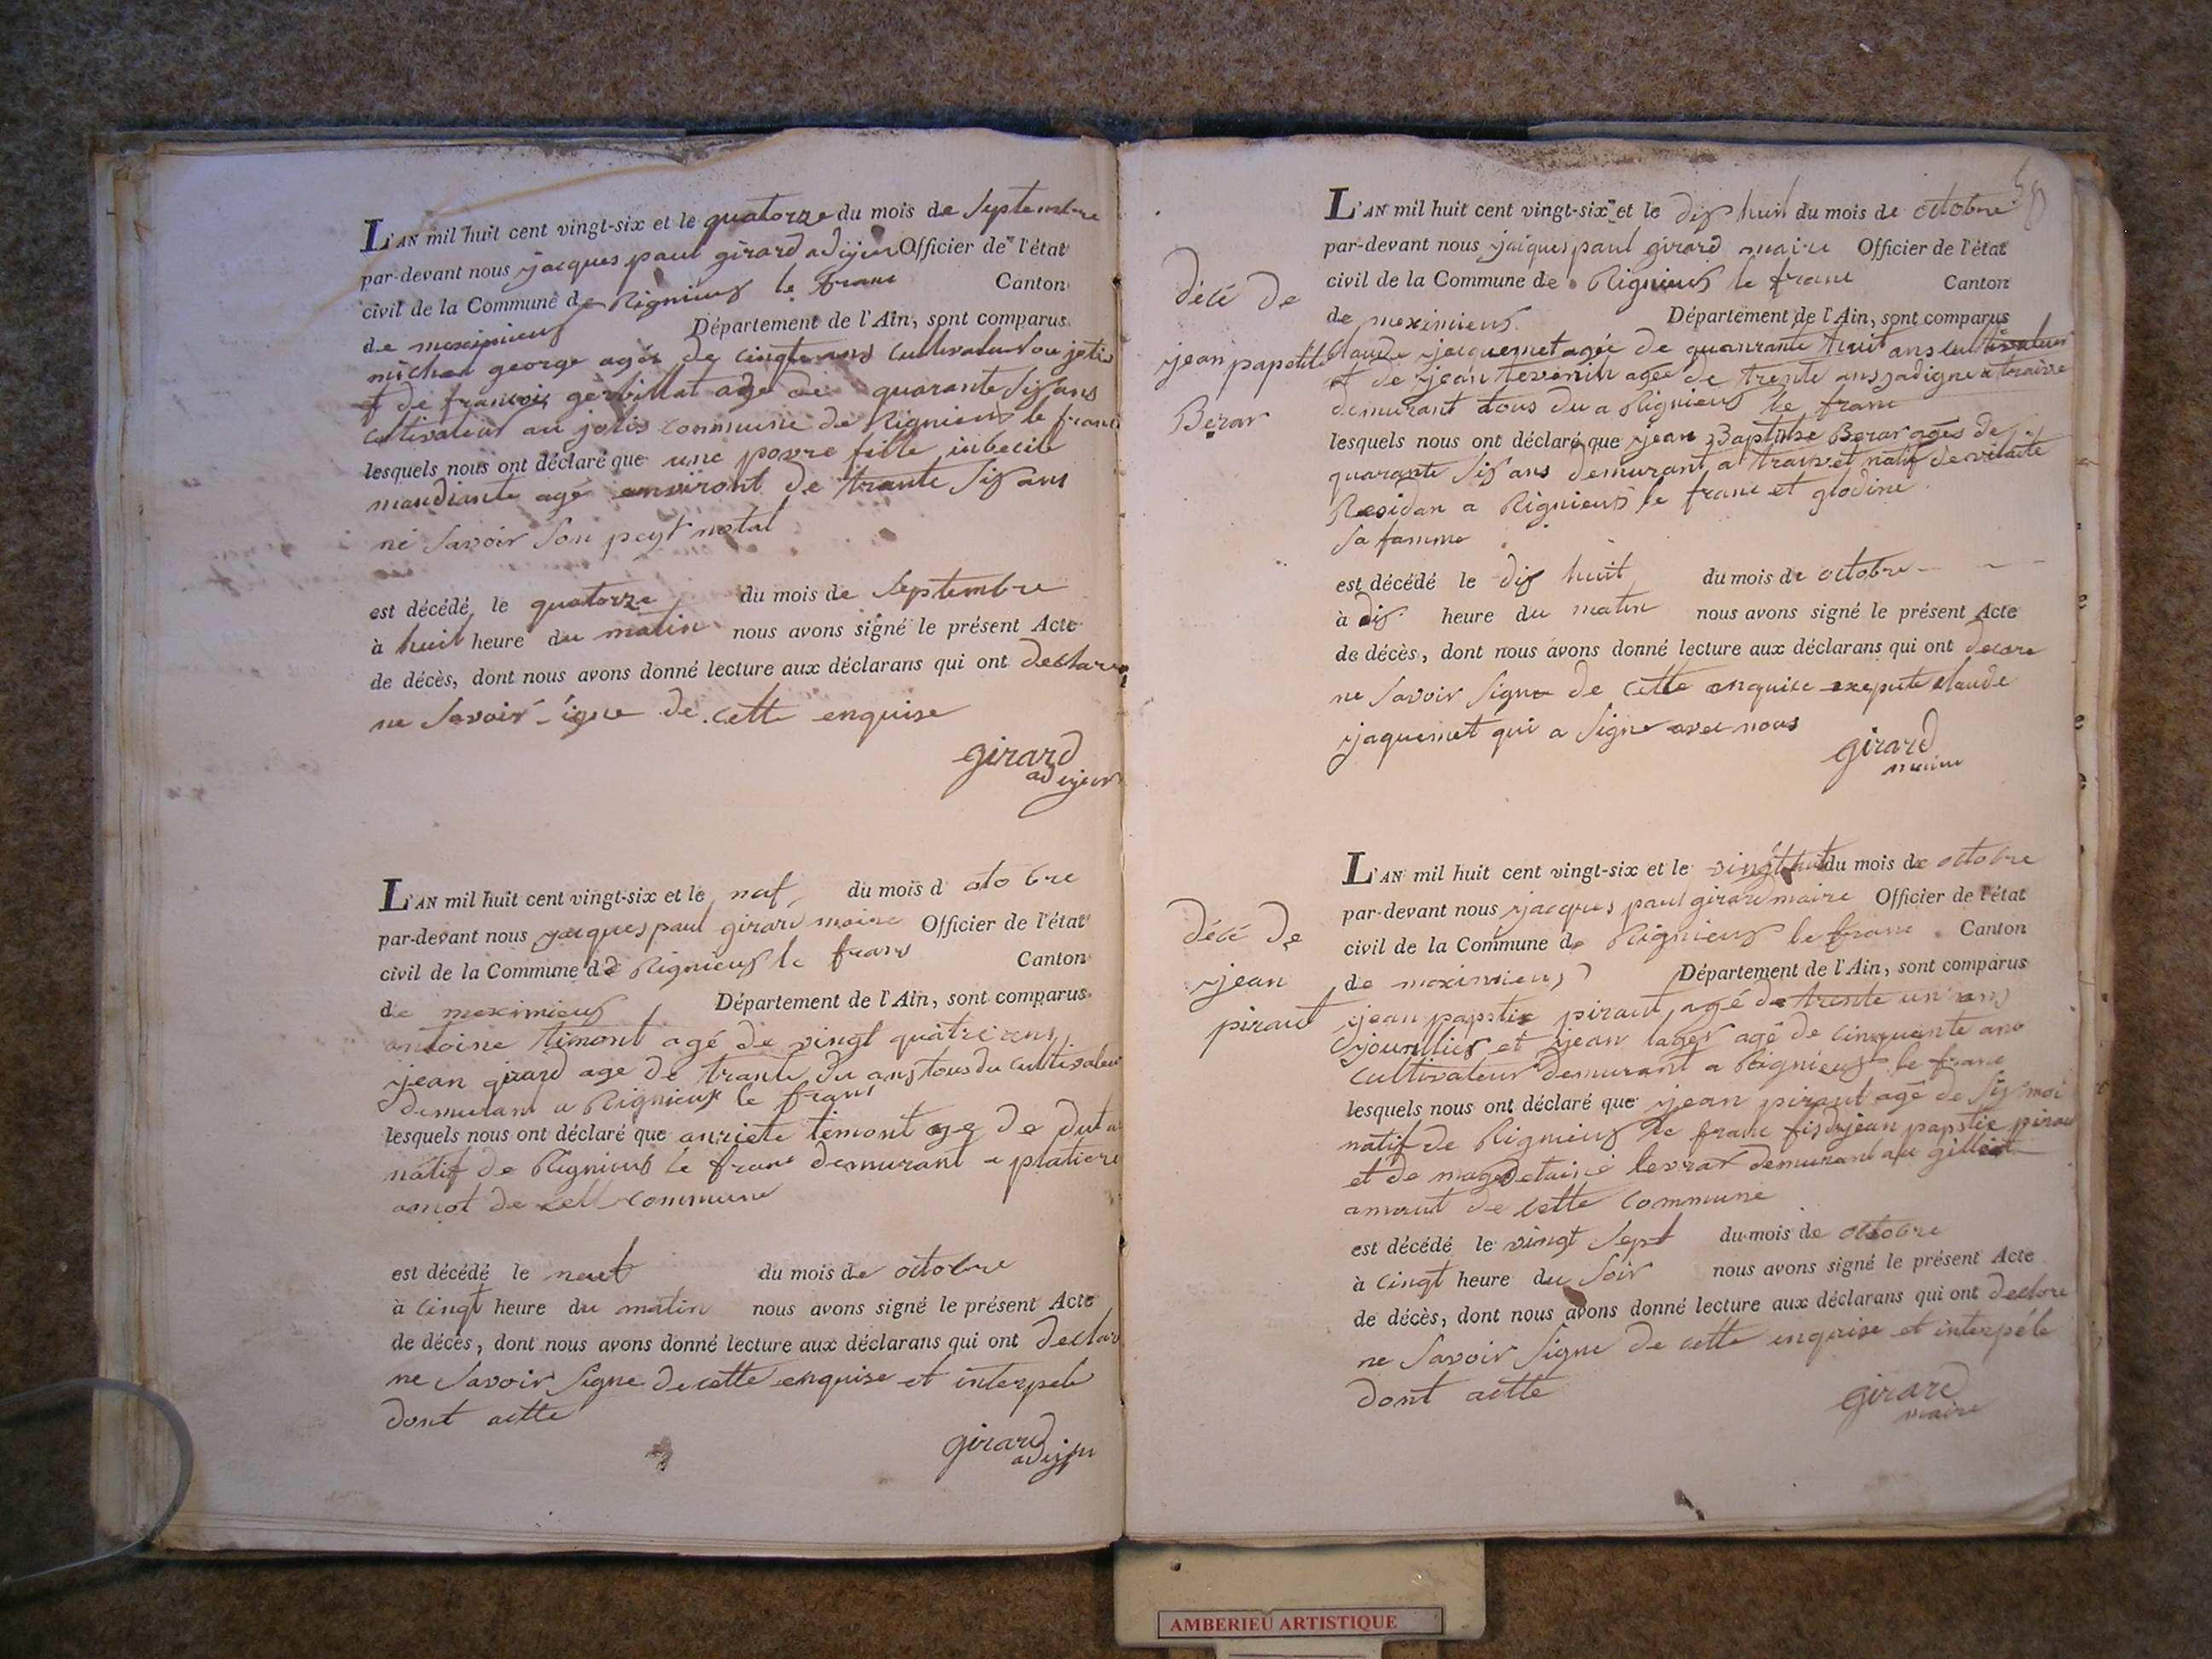 L'AN mil huit cent vingt-six et le quatorze du mois de Septembre
par-devant nous jacques paul girard adijeu Officier de l'état
civil de la Commune de Rignieux le franc Canton
de meximieux Département de l'Ain, sont comparus
michel george agés de cingte ans Cultivateur ou jolis
et de francois gerbillat age de quarante Six ans
Cultivateur au jolis commune de Rignieux le franc
lesquels nous ont déclaré que une povre fille inbecile
mandiante agé anviront de trante Six ans
ne Savoir Son peyt natal
est décédé le quatorze du mois de Septembre
à huit heure du matin nous avons signé le présent Acte
de décès, dont nous avons donné lecture aux déclarans qui ont declare
ne Savoir signe de cette enquise
girard
adijeu
L'AN mil huit cent vingt-six et le nef du mois d octobre
par-devant nous jacques paul girard maire Officier de l'état
civil de la Commune de Rignieux le franc Canton
de meximieux Département de l'Ain, sont comparus
antoine timont agé de vingt quatre ans
jean girard age de trante du ans tous du cultivateur
demurant a Rignieux le franc
lesquels nous ont déclaré que anriete timont age de du a
natif de Rignieux le franc demurant a platiere
amot de cell commune
est décédé le neuf du mois de octobre
à cingt heure du matin nous avons signé le présent Acte
de décès, dont nous avons donné lecture aux déclarans qui ont declar
ne Savoir Signe de cette enquise et interpele
dont actte
girard
adijeu
décé de
jean papstite
Berar
L'AN mil huit cent vingt-six et le dix huit du mois de octobre
par-devant nous jacques paul girard maire Officier de l'état
civil de la Commune de Rignieux le franc Canton
de meximieux Département de l'Ain, sont comparus
Claude jacquemet agée de quanrante huit ans cultivateur
et de jean tevenin agée de trente ans
demurant tous du a Rignieux le franc
lesquels nous ont déclaré que jean Baptise Berar agés de
quarante Six ans demurant a et natif de
Residan a Rignieux le franc et glodine
Sa famme
est décédé le dix huit du mois de octobre
à dix heure du matin nous avons signé le présent Acte
de décès, dont nous avons donné lecture aux déclarans qui ont decare
ne Savoir Signe de cette anquise exepute claude
jaquemet qui a Signe avec nous
girard
maire
décé de
jean
piraut
L'AN mil huit cent vingt-six et le vingt huit du mois de octobre
par-devant nous jacques paul girard maire Officier de l'état
civil de la Commune de Rignieux le franc Canton
de meximieux Département de l'Ain, sont comparus
jean papstie piraut agé de trente un ans
journlier et jean lager agé de cinquante ans
Cultivateur demurant a Rignieux le franc
lesquels nous ont déclaré que jean piraut agé de Six moi
natif de Rignieux le franc fis de jean papstie pirau
et de magdelaine levrat demurant au
amaut de cette commune
est décédé le vingt Sept du mois de octobre
à cingt heure du Soir nous avons signé le présent Acte
de décès, dont nous avons donné lecture aux déclarans qui ont declare
ne Savoir Signe de cette enquise et interpéle
dont actte
girard
maire
AMBERIEU ARTISTIQUE